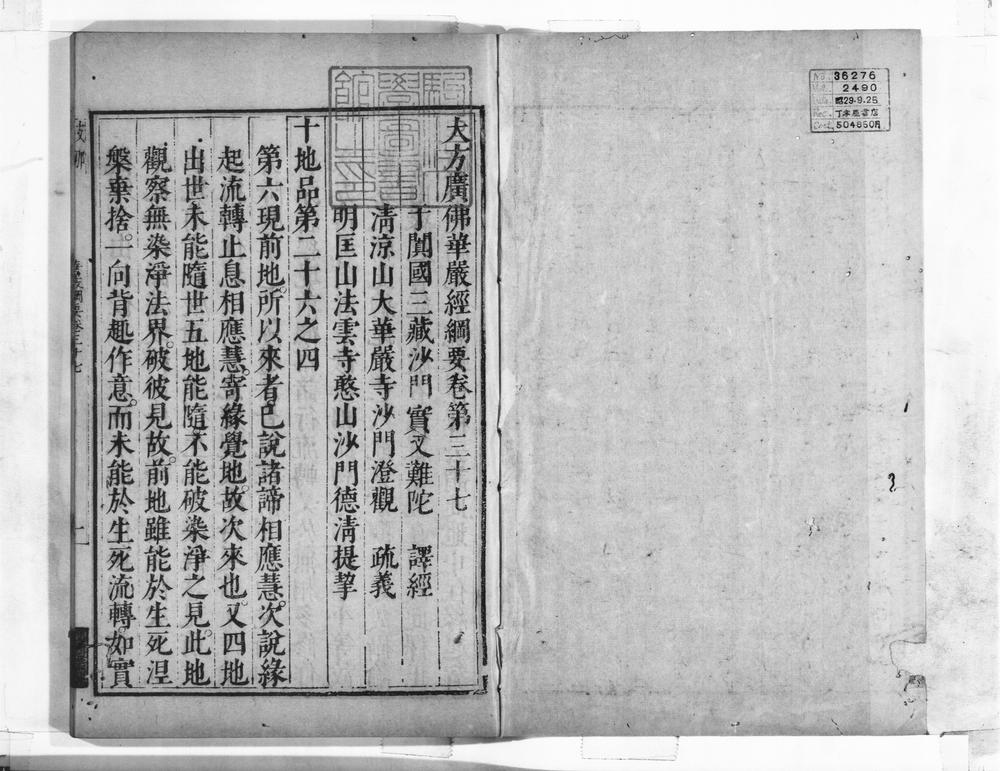 大方廣佛華嚴經綱要卷第三十七
于闐國三藏沙門實叉難陀 譯經
清涼山大華嚴寺沙門澄觀 疏義
明匡山法雲寺憨山沙門德清提挈
十地品第二十六之四
第六現前地。所以來者。已說諸諦相應慧。次說緣
起流轉止息相應慧。寄緣覺地。故次來也。又四地
出世未能隨世五地能隨。不能破染淨之見。此地
觀察無染淨法界。破彼見故。前地雖能於生死涅
槃棄捨。一向背趣作意。而未能於生死流轉。如實
36276
2490
昭29.9.25
504850円